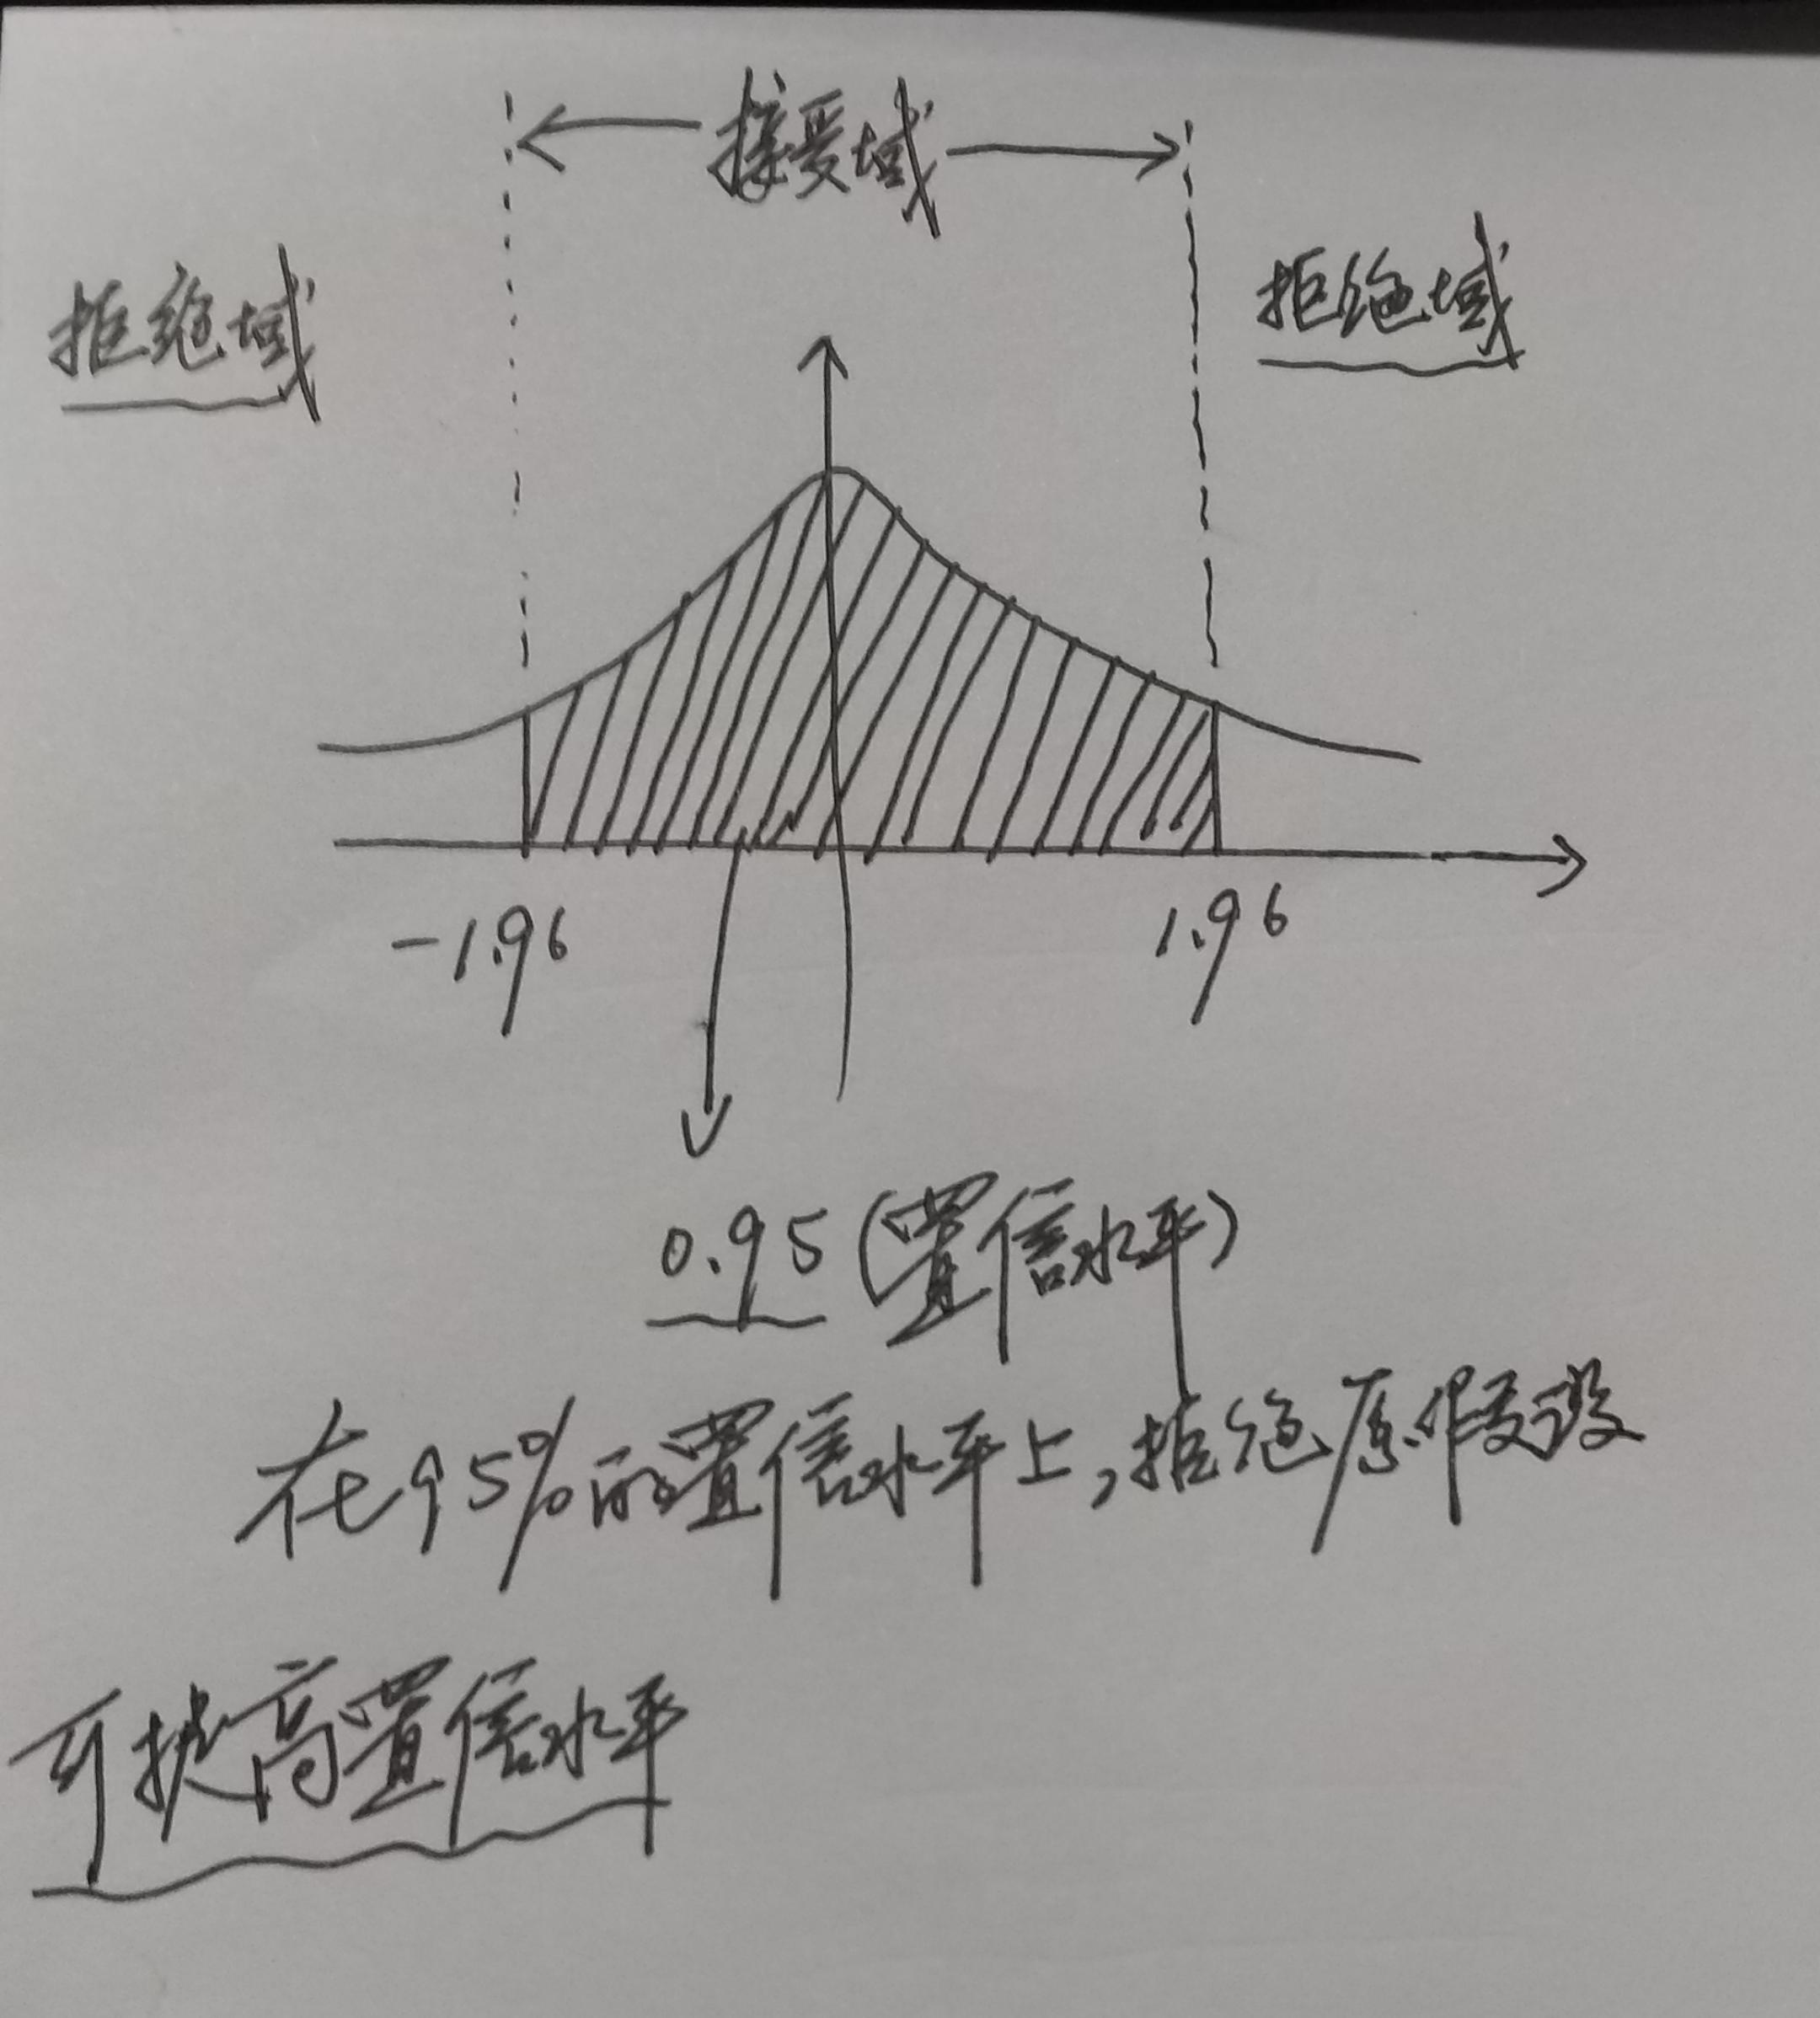 接受域
拒绝域
拒绝域
-1.96
1.96
0.95(置信水平)
在95%的置信水平上,拒绝原假设
可提高置信水平